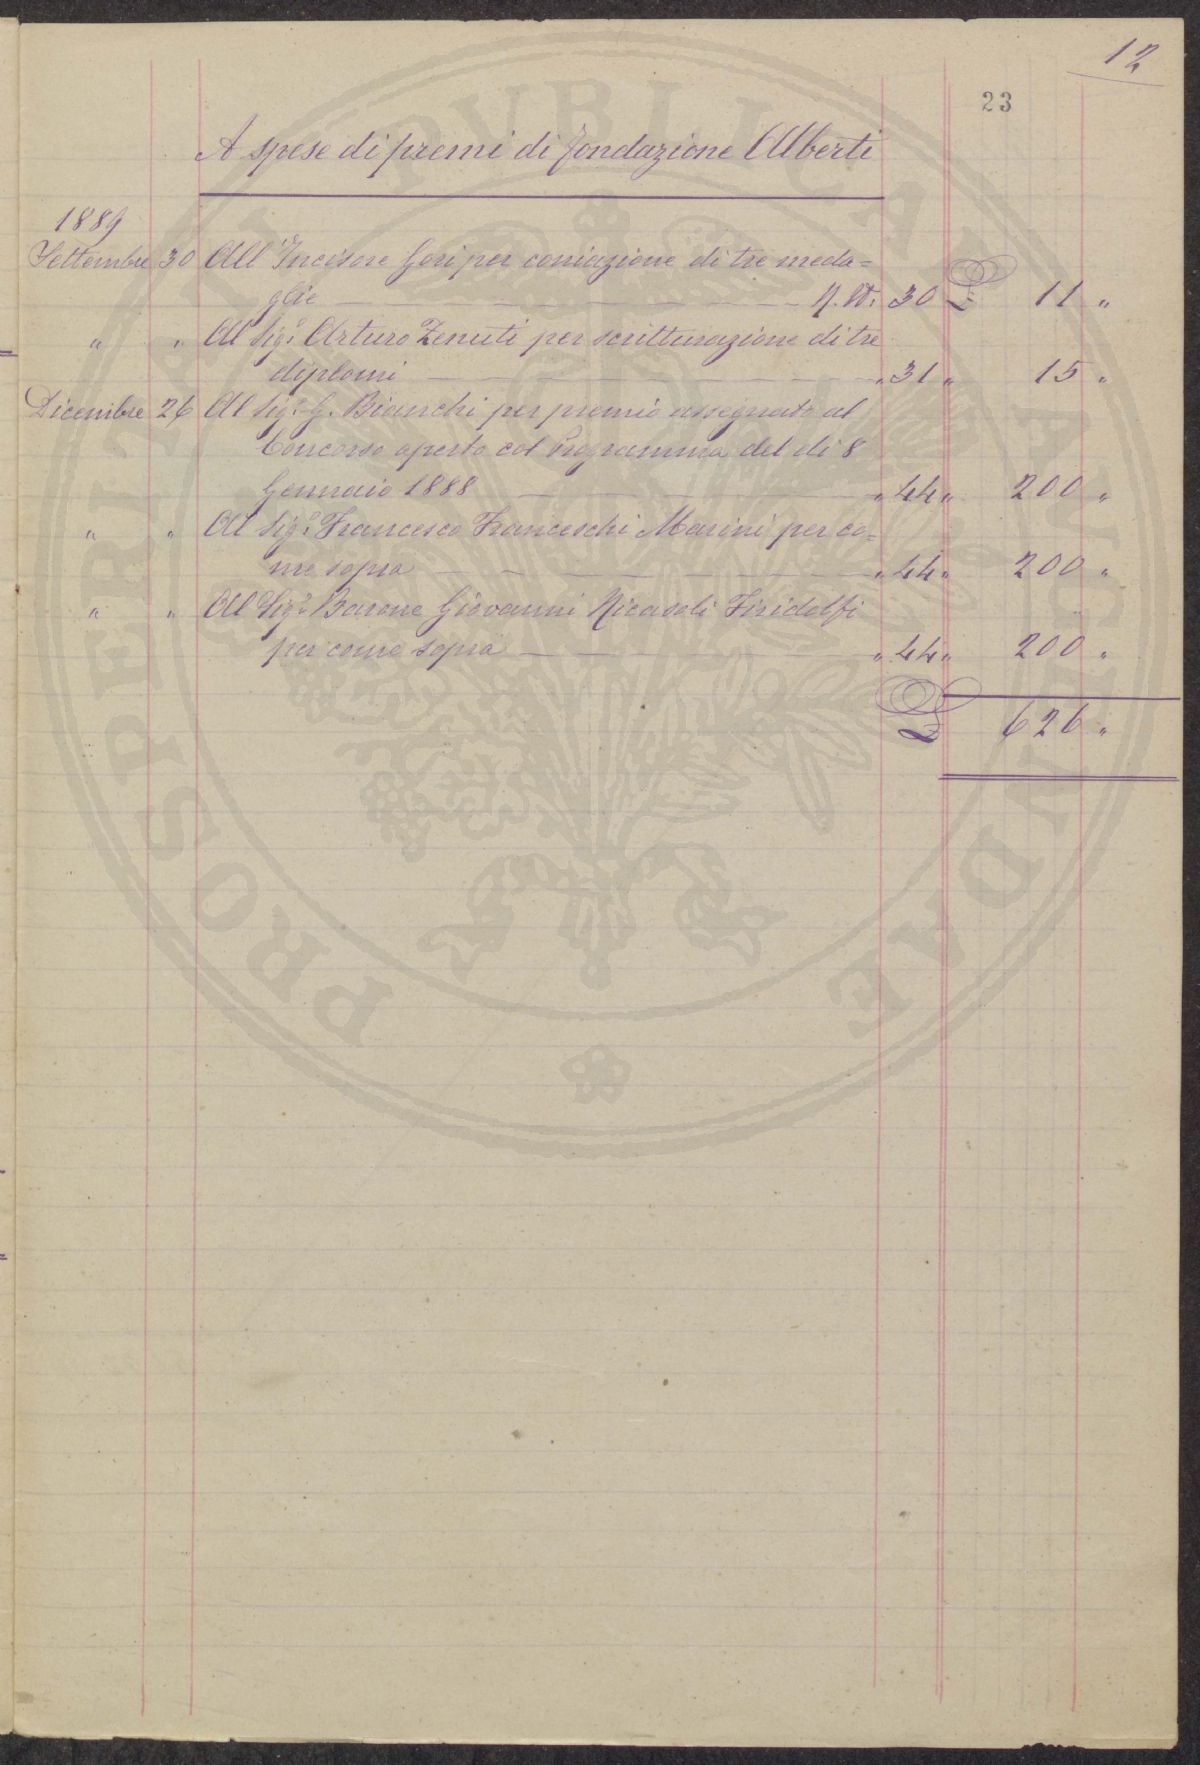 12
23
A spese di premi di fondazione Alberti
1889
Settembre 30 All'Incisore Gori per coniazione di tre meda=
glie 30 £ 11 "
" " Al Sig.r Arturo Zenuti per scritturazione di tre
diplomi " 31 " 15 "
Dicembre 26 Al Sig.r G. Bianchi per premio assegnato al
Concorso aperto col Programma del dì 8
Gennaio 1888 " 44 " 200 "
" " Al Sig.r Francesco Franceschi Marini per co=
me sopra " 44 " 200 "
" " Al Sig.r Barone Giovanni Ricasoli Firidolfi
per come sopra " 44 " 200 "
£ 626 "
PROSPERITATI PVBLICAE AVGENDAE